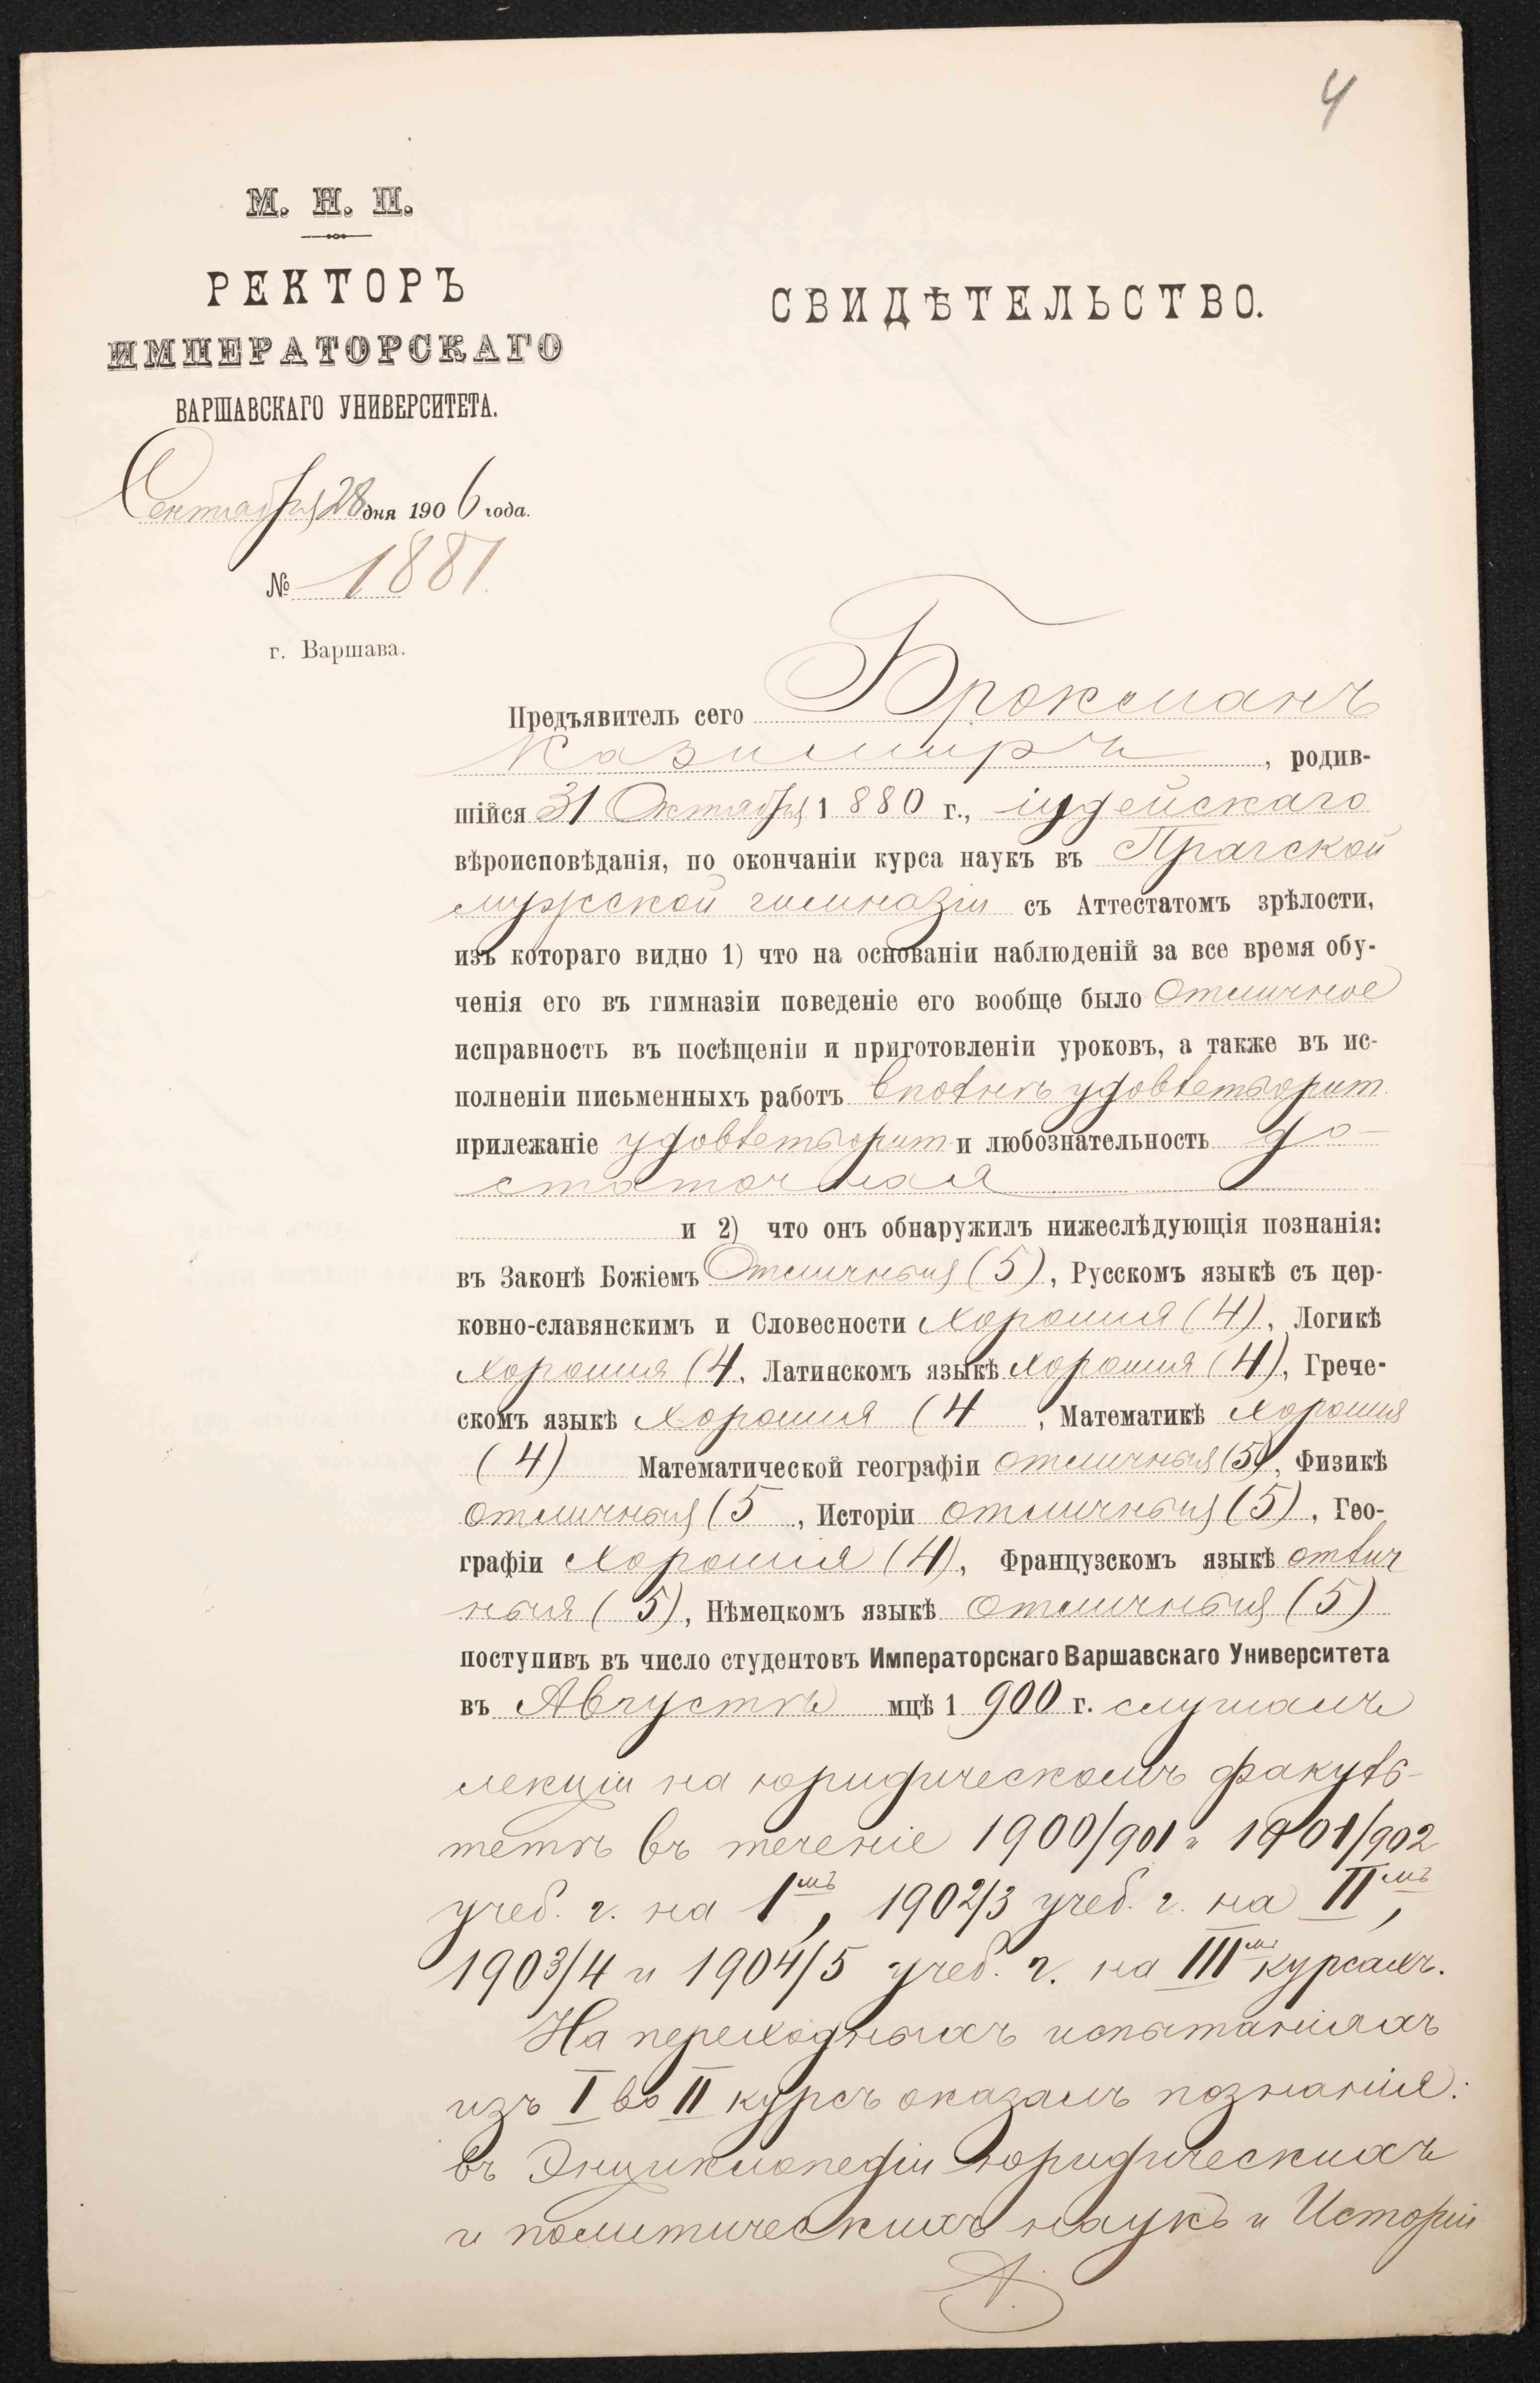 4
М. Н. П.
РЕКТОРЪ
ИМПЕРАТОРСКАГО
ВАРШАВСКАГО УНИВЕРСИТЕТА.
Сентября 28 дня 1906 года.
№ 1881.
г. Варшава.
СВИДѢТЕЛЬСТВО.
Предъявитель сего Броксманъ
Казимиръ, родив-
шійся 31 Октября 1880 г., іудейскаго
вѣроисповѣданія, по окончаніи курса наукъ въ Прагской
мужской гимназіи съ Аттестатомъ зрѣлости,
изъ котораго видно 1) что на основаніи наблюденій за все время обу-
ченія его въ гимназіи поведеніе его вообще было Отличное
исправность въ посѣщеніи и приготовленіи уроковъ, а также въ ис-
полненіи письменныхъ работъ вполнѣ удовлетворит.
прилежаніе удовлетворит и любознательность до-
статочная
и 2) что онъ обнаружилъ нижеслѣдующія познанія:
въ Законѣ Божіемъ Отличныя (5), Русскомъ языкѣ съ цер-
ковно-славянскимъ и Словесности Хорошія (4), Логикѣ
Хорошія (4, Латинскомъ языкѣ Хорошія (4), Грече-
скомъ языкѣ Хорошія (4 , Математикѣ Хорошія
(4) Математической географіи отличныя (5), Физикѣ
отличныя (5 , Исторіи отличныя (5), Гео-
графіи Хорошія (4), Французскомъ языкѣ отлич
ныя (5), Нѣмецкомъ языкѣ Отличныя (5)
поступивъ въ число студентовъ Императорскаго Варшавскаго Университета
въ Августѣ мцѣ 1900 г. слушалъ
лекціи на юридическомъ факуль-
тетѣ въ теченіе 1900/901 и 1901/902
учеб. г. на I мъ, 1902/3 учеб. г. на II мъ,
1903/4 и 1904/5 учеб. г. на III мъ курсахъ.
На переходныхъ испытаніяхъ
изъ I во II курсъ оказалъ познанія:
въ Энциклопедіи юридическихъ
и политическихъ наукъ и Исторіи